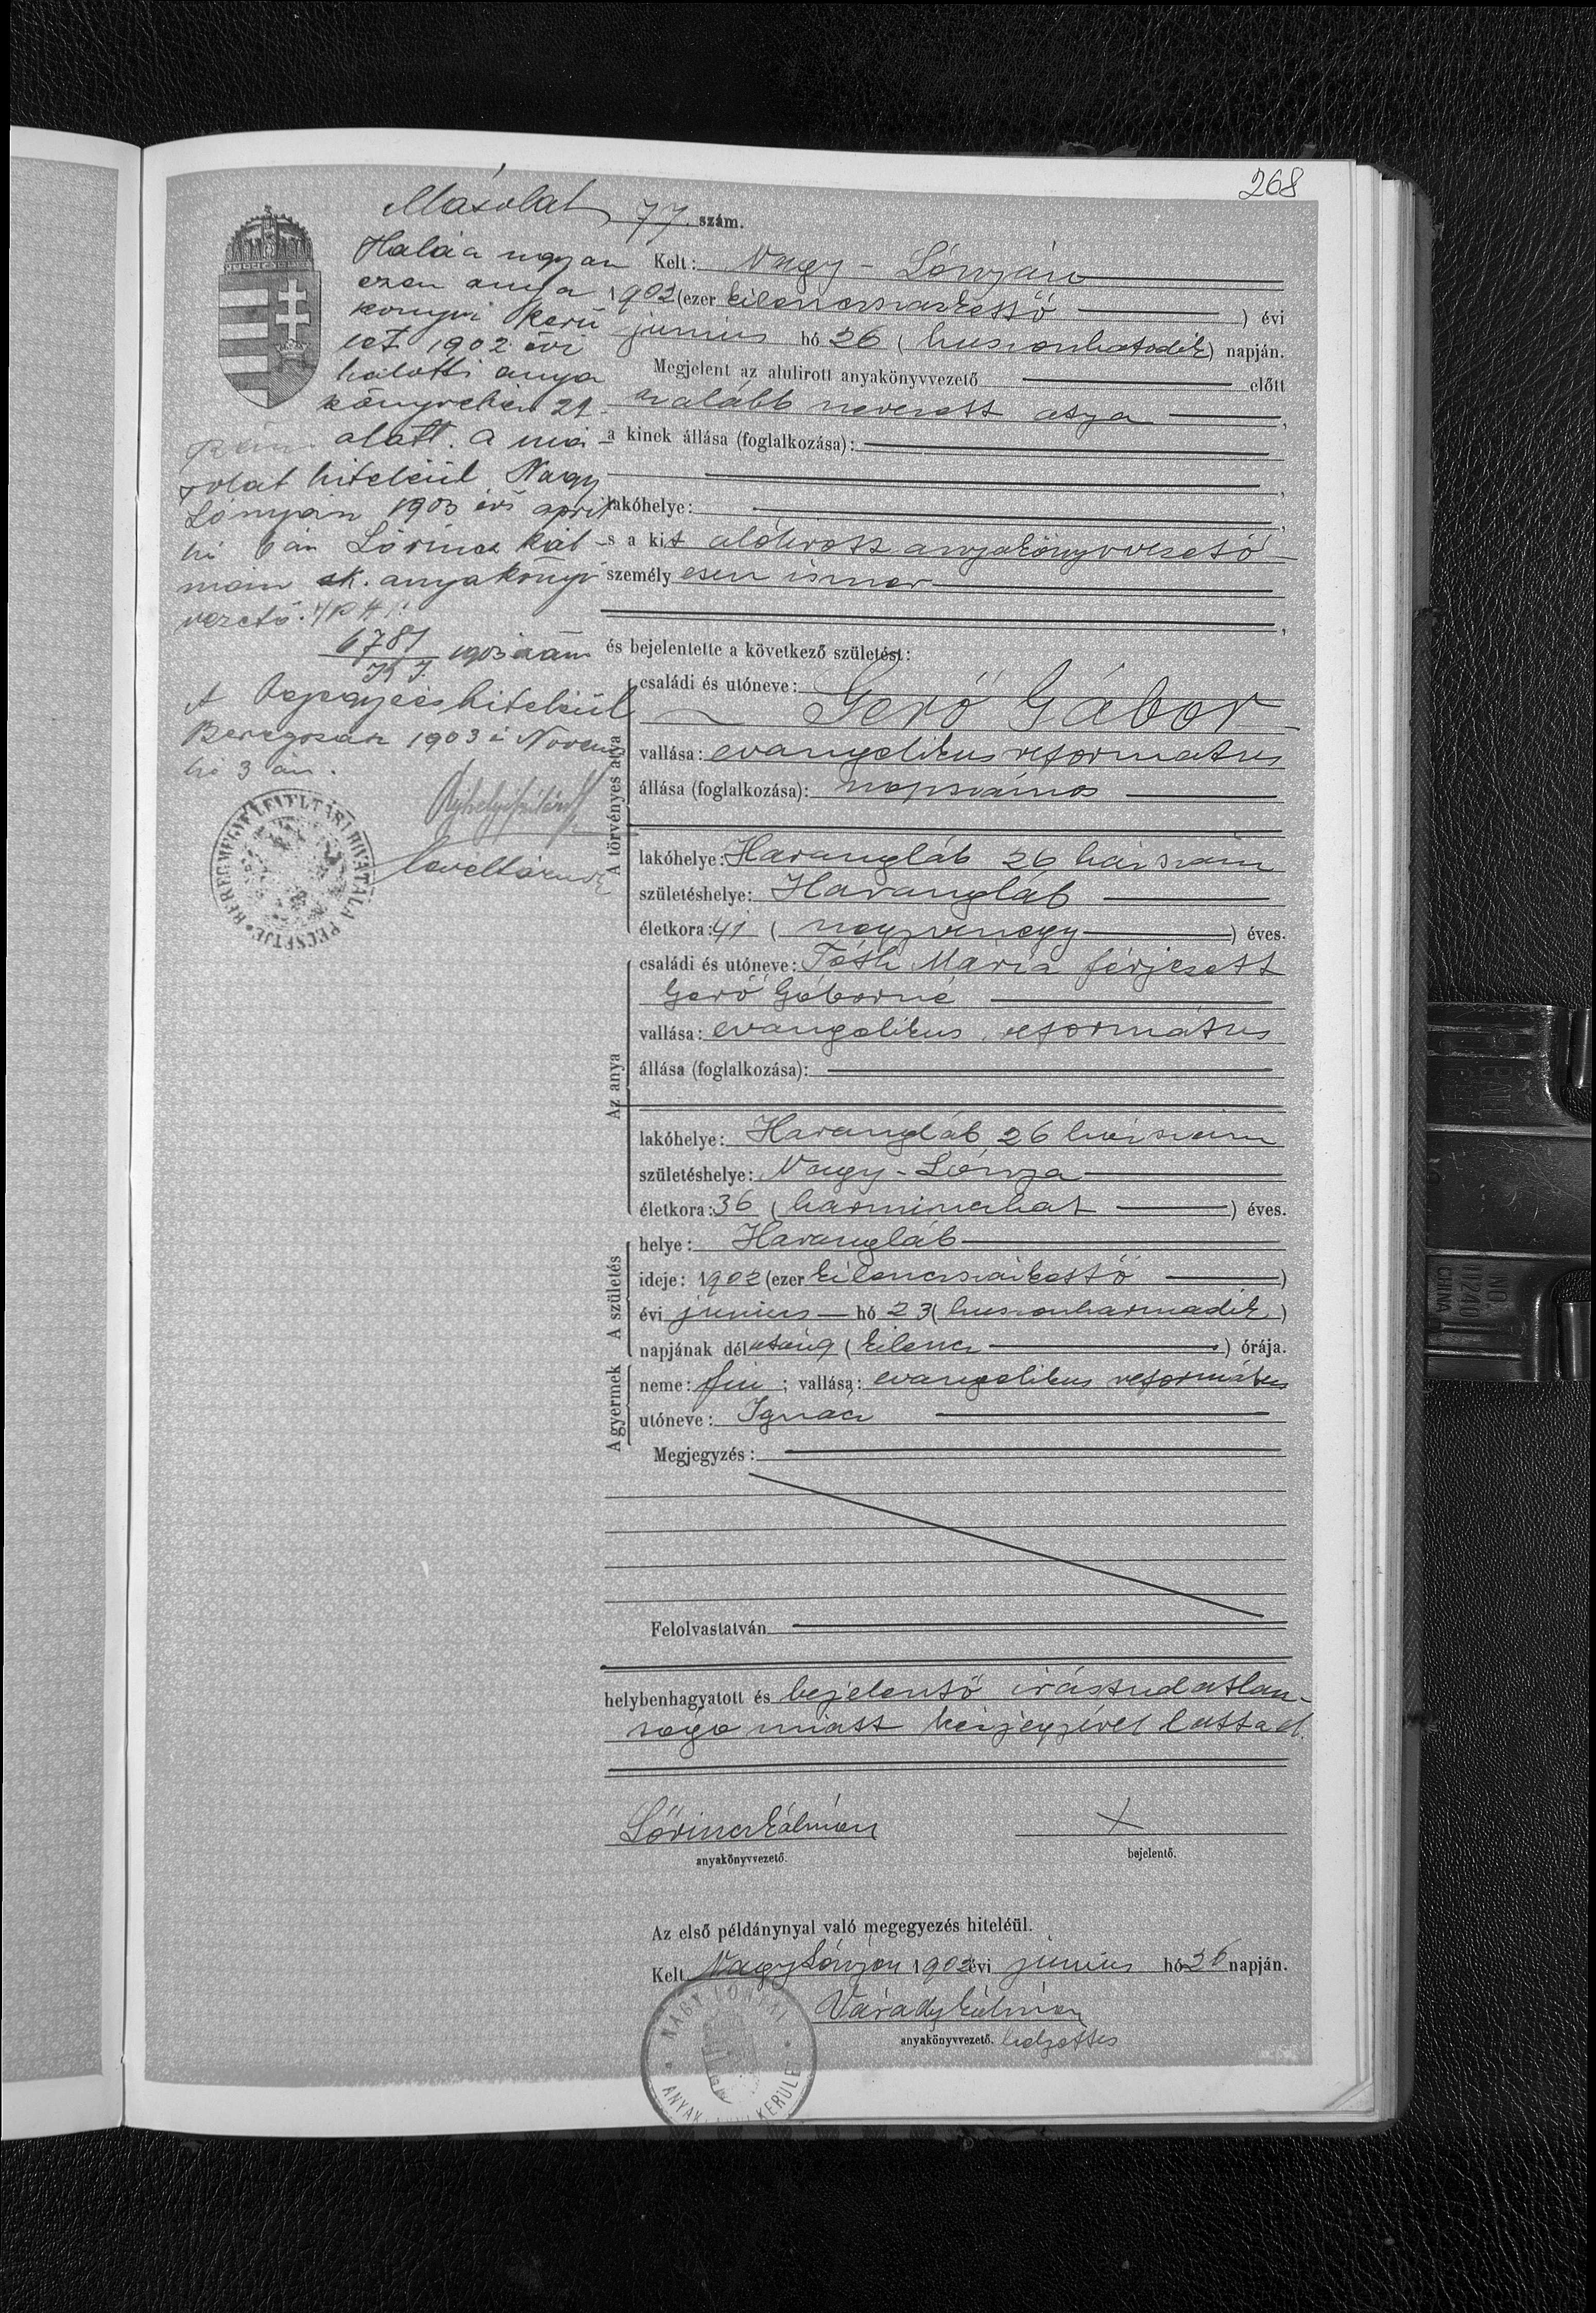 268
Másolat 77 szám.
Kelt: Nagy-Lónyán
1902 (ezer kilencszázkettő) évi
junius hó 26 (huszonhatodik) napján.
Megjelent az alulirott anyakönyvvezető előtt
az alább nevezett atya,
a kinek állása (foglalkozása):
lakóhelye:
s a kit alólirott anyakönyvvezető
személyesen ismer
és bejelentette a következő születést:
A törvényes atya
családi és utóneve:
Gerő Gábor
vallása: evangelikus reformatus
állása (foglalkozása): napszámos
lakóhelye: Harangláb 26 házszám
születéshelye: Harangláb
életkora: 41 (negyvenegy) éves.
Az anya
családi és utóneve: Tóth Mária férjezett
Gerő Gáborné
vallása: evangelikus református
állása (foglalkozása):
lakóhelye: Harangláb 26 házszám
születéshelye: Nagy-Lónya
életkora: 36 (harminchat) éves.
A születés
helye: Harangláb
ideje: 1902 (ezer kilencszázkettő)
évi junius hó 23 (huszonharmadik)
napjának délutáni (kilenc) órája.
A gyermek
neme: fiu; vallása: evangelikus református
utóneve: Ignác
Megjegyzés:
Felolvastatván
helybenhagyatott és bejelentő irástudatlan-
sága miatt kézjegyével látta el.
Lőrincz Kálmán X
anyakönyvvezető. bejelentő.
Az első példánynyal való megegyezés hiteléül.
Kelt Nagy Lónyán 1902 évi junius hó 26 napján.
Várady Kálmán
anyakönyvvezető. helyettes
NAGY LÓNYAI
ANYAK KERÜLET
Halá a ugyan
ezen anya
könyvi kerü
let 1902 évi
halotti anya
könyvében 21.
szám alatt. A má
solat hiteléül Nagy
Lónyán 1903 évi april
hó 6 án Lőrincz Kál
mán sk. anyakönyv
vezető. /P H/
6781 1903 szám
A bejegyzés hiteléül
Beregszász 1903 é Novemb
hó 3 án.
levéltárnok
BEREGMEGYE LEVÉLTÁRI HIVATALA PECSÉTJE